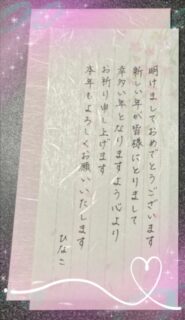 明けましておめでとうございます
新しい年が皆様にとりまして
幸多い年となりますよう心より
お祈り申し上げます
本年もよろしくお願いいたします
ひなこ